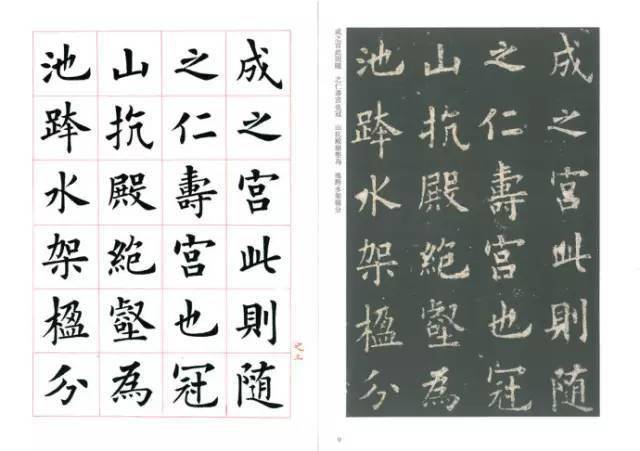 成之宮此則随
之仁壽宮也冠
山抗殿絶壑為
池跨水架楹分
成之宮此則随 之仁壽宮也冠 山抗殿絶壑為 池跨水架楹分
9
成之宮此則随
之仁壽宮也冠
山抗殿絶壑為
池跨水架楹分